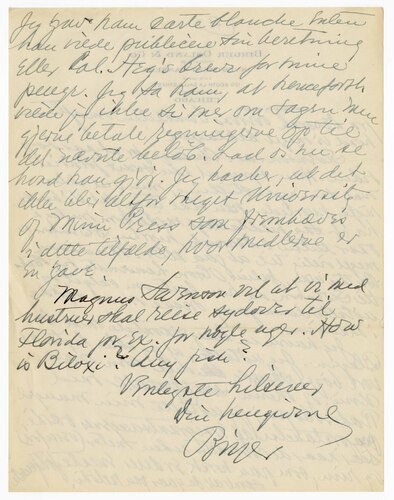 Jeg gav ham carte blanche enten
han vilde publicere sin beretning
eller Col. Heg's breve for mine
penge. Jeg sa ham, at henceforth
vilde jeg ikke si mer om sagen men
gjerne betale regningerne op til
det nævnte beløb. Lad os nu se
hvad han gjør. Jeg haaber, at det
ikke blir altfor meget University
of Minn Press som fremhæves
i dette tilfælde, hvor midlerne er
en gave
Magnus Swenson vil at vi med
hustruer skal reise sydover til
Florida for Ex. for nogle uger. How
is Biloxi? Any fish?
Venligste hilsener
Din hengivne
Birger
BIRGER OSLAND & CO.
CHICAGO